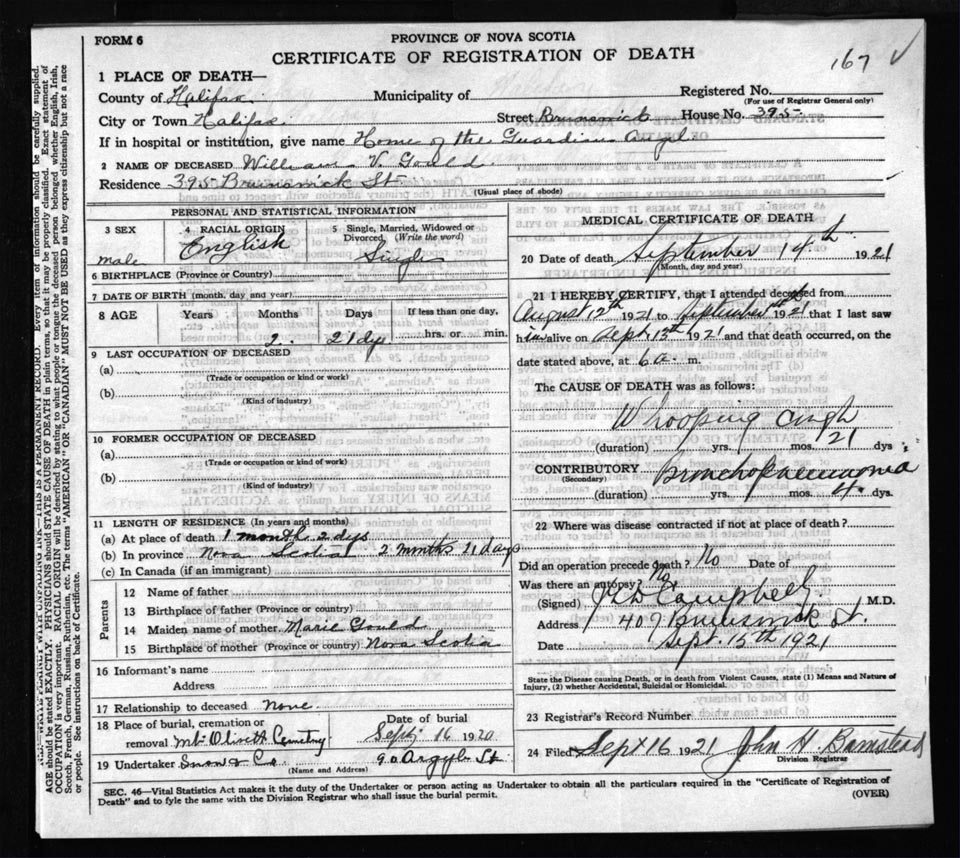 FORM 6
PROVINCE OF NOVA SCOTIA
CERTIFICATE OF REGISTRATION OF DEATH
167 ✓
1 PLACE OF DEATH—
County of Halifax. Municipality of Registered No.
(For use of Registrar General only)
City or Town Halifax. Street Brunswick House No. 395
If in hospital or institution, give name Home of the Guardian Angel.
2 NAME OF DECEASED William V. Gould
Residence 395 Brunswick St
(Usual place of abode)
PERSONAL AND STATISTICAL INFORMATION
3 SEX 4 RACIAL ORIGIN 5 Single, Married, Widowed or Divorced, (Write the word)
male English Single
6 BIRTHPLACE (Province or Country)
7 DATE OF BIRTH (month, day and year)
8 AGE Years Months Days If less than one day,
2. 21 dys hrs. or min.
9 LAST OCCUPATION OF DECEASED
(a)
(Trade or occupation or kind or work)
(b)
(Kind of industry)
10 FORMER OCCUPATION OF DECEASED
(a)
(Trade or occupation or kind or work)
(b)
(Kind of industry)
11 LENGTH OF RESIDENCE (In years and months)
(a) At place of death 1 month 2 dys
(b) In province Nova Scotia 2 months 21 days
(c) In Canada (if an immigrant)
Parents
12 Name of father
13 Birthplace of father (Province or country)
14 Maiden name of mother Marie Gould
15 Birthplace of mother (Province or country) Nova Scotia
16 Informant's name
Address
17 Relationship to deceased None
18 Place of burial, cremation or Date of burial
removal Mt Olivett Cemetery Sept 16 1920
19 Undertaker Snow & Co 90 Argyle St
(Name and Address)
MEDICAL CERTIFICATE OF DEATH
20 Date of death September 14th 1921
(Month, day and year)
21 I HEREBY CERTIFY, that I attended deceased from
August 12th 1921 to September 14th 1921 that I last saw
him alive on Sept 13th 1921 and that death occurred, on the
date stated above, at 6 a. m.
The CAUSE OF DEATH was as follows:
Whooping cough
(duration) yrs. mos. 21 dys.
CONTRIBUTORY Bronchopneumonia
(Secondary)
(duration) yrs. mos. 4. dys.
22 Where was disease contracted if not at place of death?
Did an operation precede death? No Date of
Was there an autopsy? No.
(Signed) Campbell M.D.
Address 407 Brunswick St.
Date Sept. 15th 1921
State the Disease causing Death, or in death from Violent Causes, state (1) Means and Nature of
Injury, (2) whether Accidental, Suicidal or Homicidal.
23 Registrar's Record Number
24 Filed Sept 16 1921 John H Barnstead
Division Registrar
SEC. 46—Vital Statistics Act makes it the duty of the Undertaker or person acting as Undertaker to obtain all the particulars required in the "Certificate of Registration of
Death" and to fyle the same with the Division Registrar who shall issue the burial permit.
(OVER)
WRITE PLAINLY WITH UNFADING INK—THIS IS A PERMANENT RECORD. Every item of information should be carefully supplied.
AGE should be stated EXACTLY. PHYSICIANS should STATE CAUSE OF DEATH in plain terms, so that it may be properly classified. Exact statement of
OCCUPATION is very important. RACIAL ORIGIN will be described by stating to what people or tongue the deceased person belonged whether English, Irish,
Scotch, French, German, Russian, Ruthenian, etc. The terms "AMERICAN" OR "CANADIAN" MUST NOT BE USED as they express citizenship but not a race
or people. See instructions on back of Certificate.